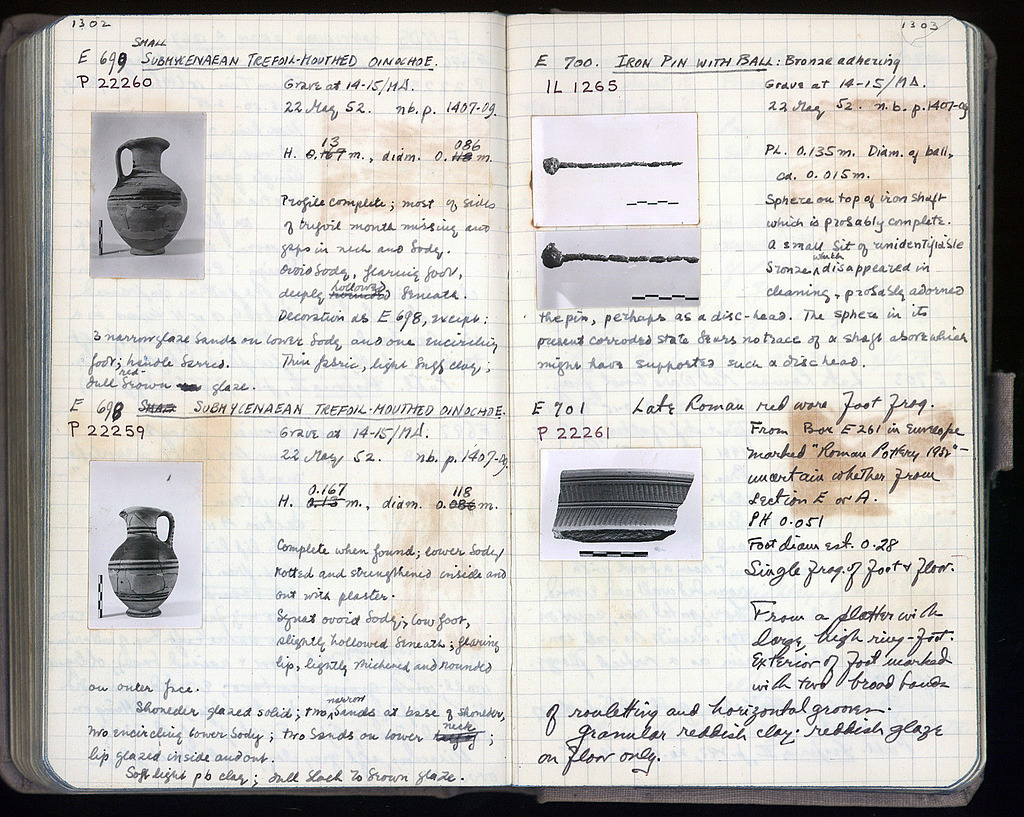 1302
SMALL
E 699 SUBMYCENAEAN TREFOIL-MOUTHED OINOCHOE.
P 22260
Grave at 14-15/ΜΔ.
22 May 52. nb. p. 1407-09.
13 086
H. 0.167 m., diam. 0.118 m.
Profile complete; most of sides
of trefoil mouth missing and
gaps in neck and body.
Ovoid body, flaring foot,
hollowed
deeply rounded beneath.
Decoration as E 698, except:
3 narrow glaze bands on lower body and one encircling
foot; handle barred. Thin fabric, light buff clay;
red-
dull brown glaze.
E 698 SUBMYCENAEAN TREFOIL-MOUTHED OINOCHOE.
P 22259
Grave at 14-15/ΜΔ.
22 May 52. nb. p. 1407-09.
0.167 118
H. 0.13 m., diam. 0.086 m.
Complete when found; lower body
rotted and strengthened inside and
out with plaster.
Squat ovoid body; low foot,
slightly hollowed beneath; flaring
lip, lightly thickened and rounded
on outer face.
narrow
Shoulder glazed solid; two bands at base of shoulder,
neck
two encircling lower body; two bands on lower ;
lip glazed inside and out.
Soft light pb clay; dull black to brown glaze.
1303
E 700. IRON PIN WITH BALL: Bronze adhering
IL 1265
Grave at 14-15/ΜΔ.
22 May 52. nb. p. 1407-09
PL. 0.135 m. Diam. of ball,
ca. 0.015 m.
Sphere on top of iron shaft
which is probably complete.
A small bit of unidentifiable
which
bronze disappeared in
cleaning, probably adorned
the pin, perhaps as a disc-head. The sphere in its
present corroded state bears no trace of a shaft above which
might have supported such a disc head.
E 701 Late Roman red ware foot frag.
P 22261
From Box E 261 in envelope
marked "Roman Pottery 1951" -
uncertain whether from
Section E or A.
PH 0.051
Foot diam est. 0.28
Single frag. of foot & floor.
From a platter with
large, high ring-foot.
Exterior of foot marked
with two broad bands
of rouletting and horizontal grooves.
Granular reddish clay: reddish glaze
on floor only.